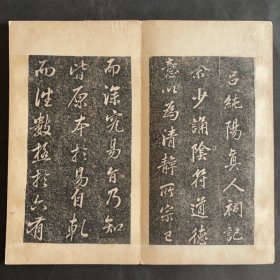 吕純陽真人祠記
余少誦陰符道德
意以為清靜所宗已
而深究易旨乃知
皆原本於易自乾
而進數極於六有